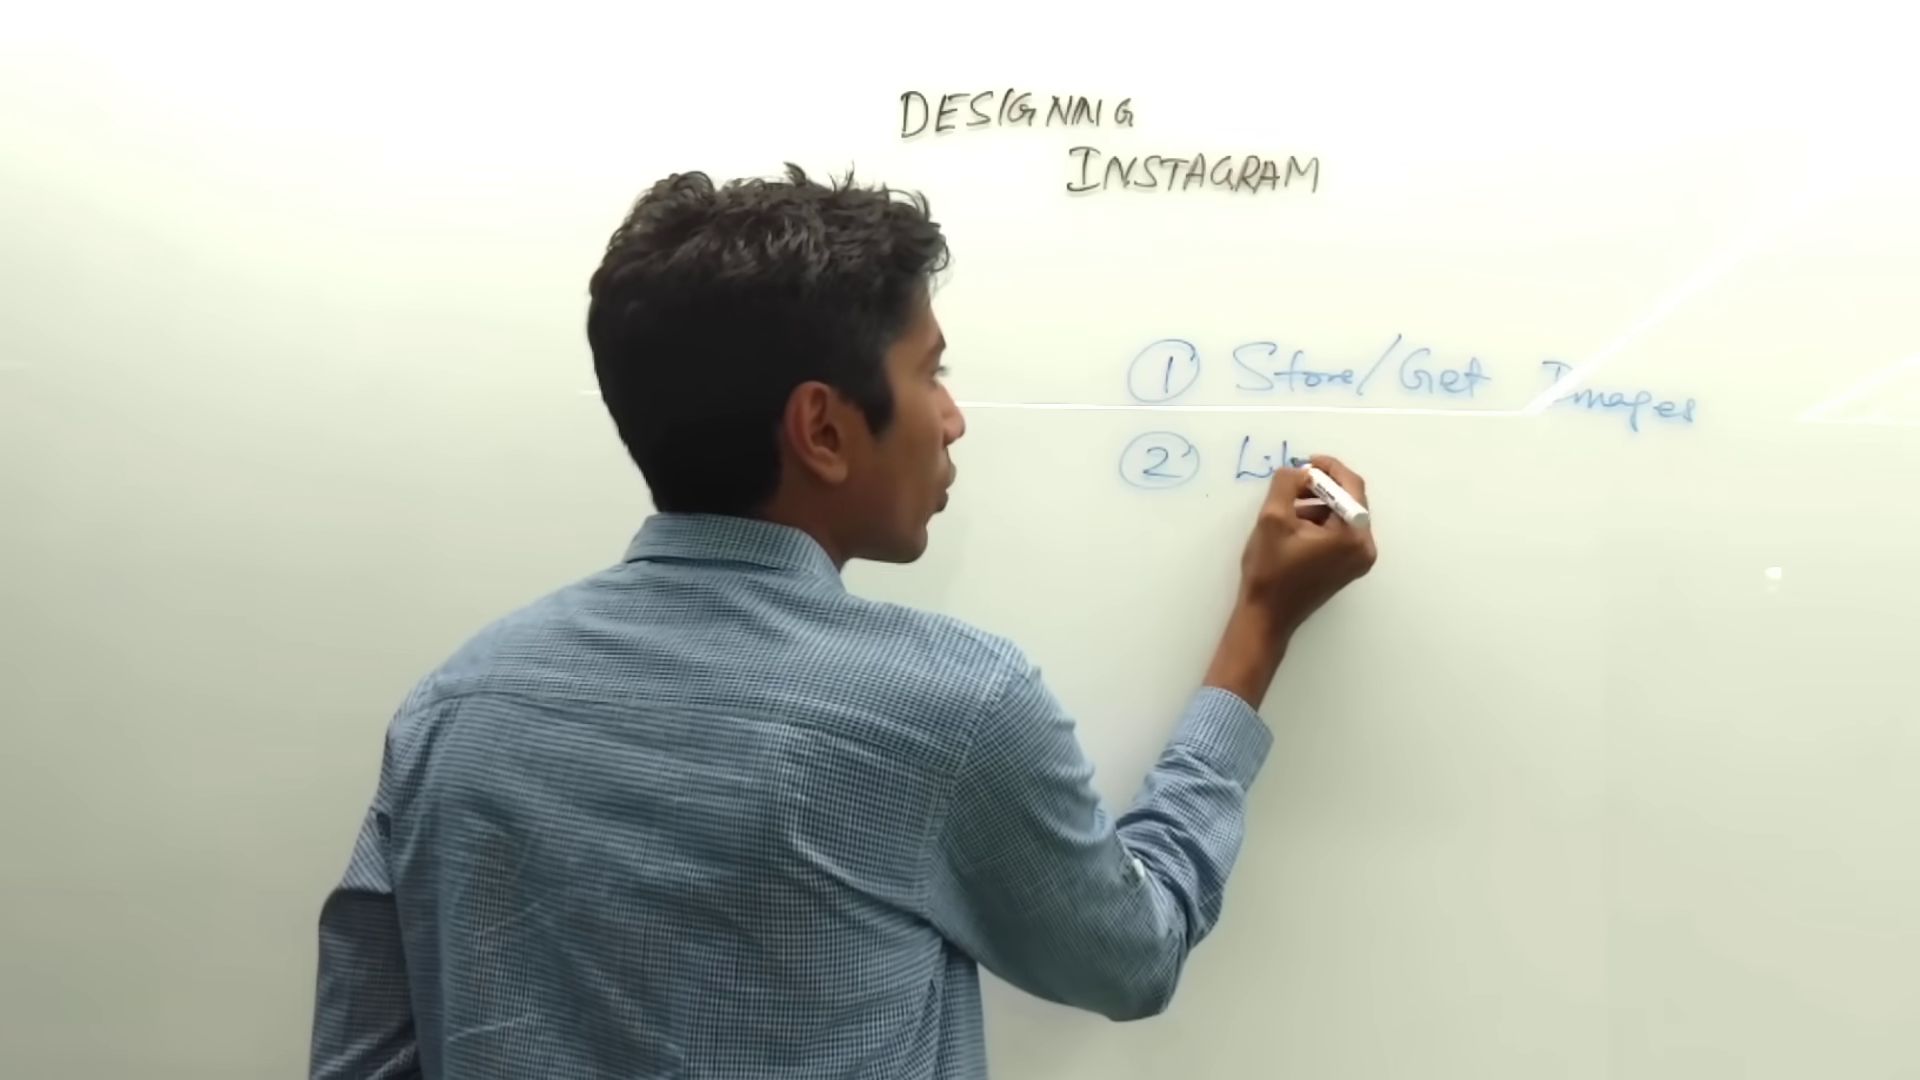 DESIGNING
INSTAGRAM
1 Store/Get Images
2